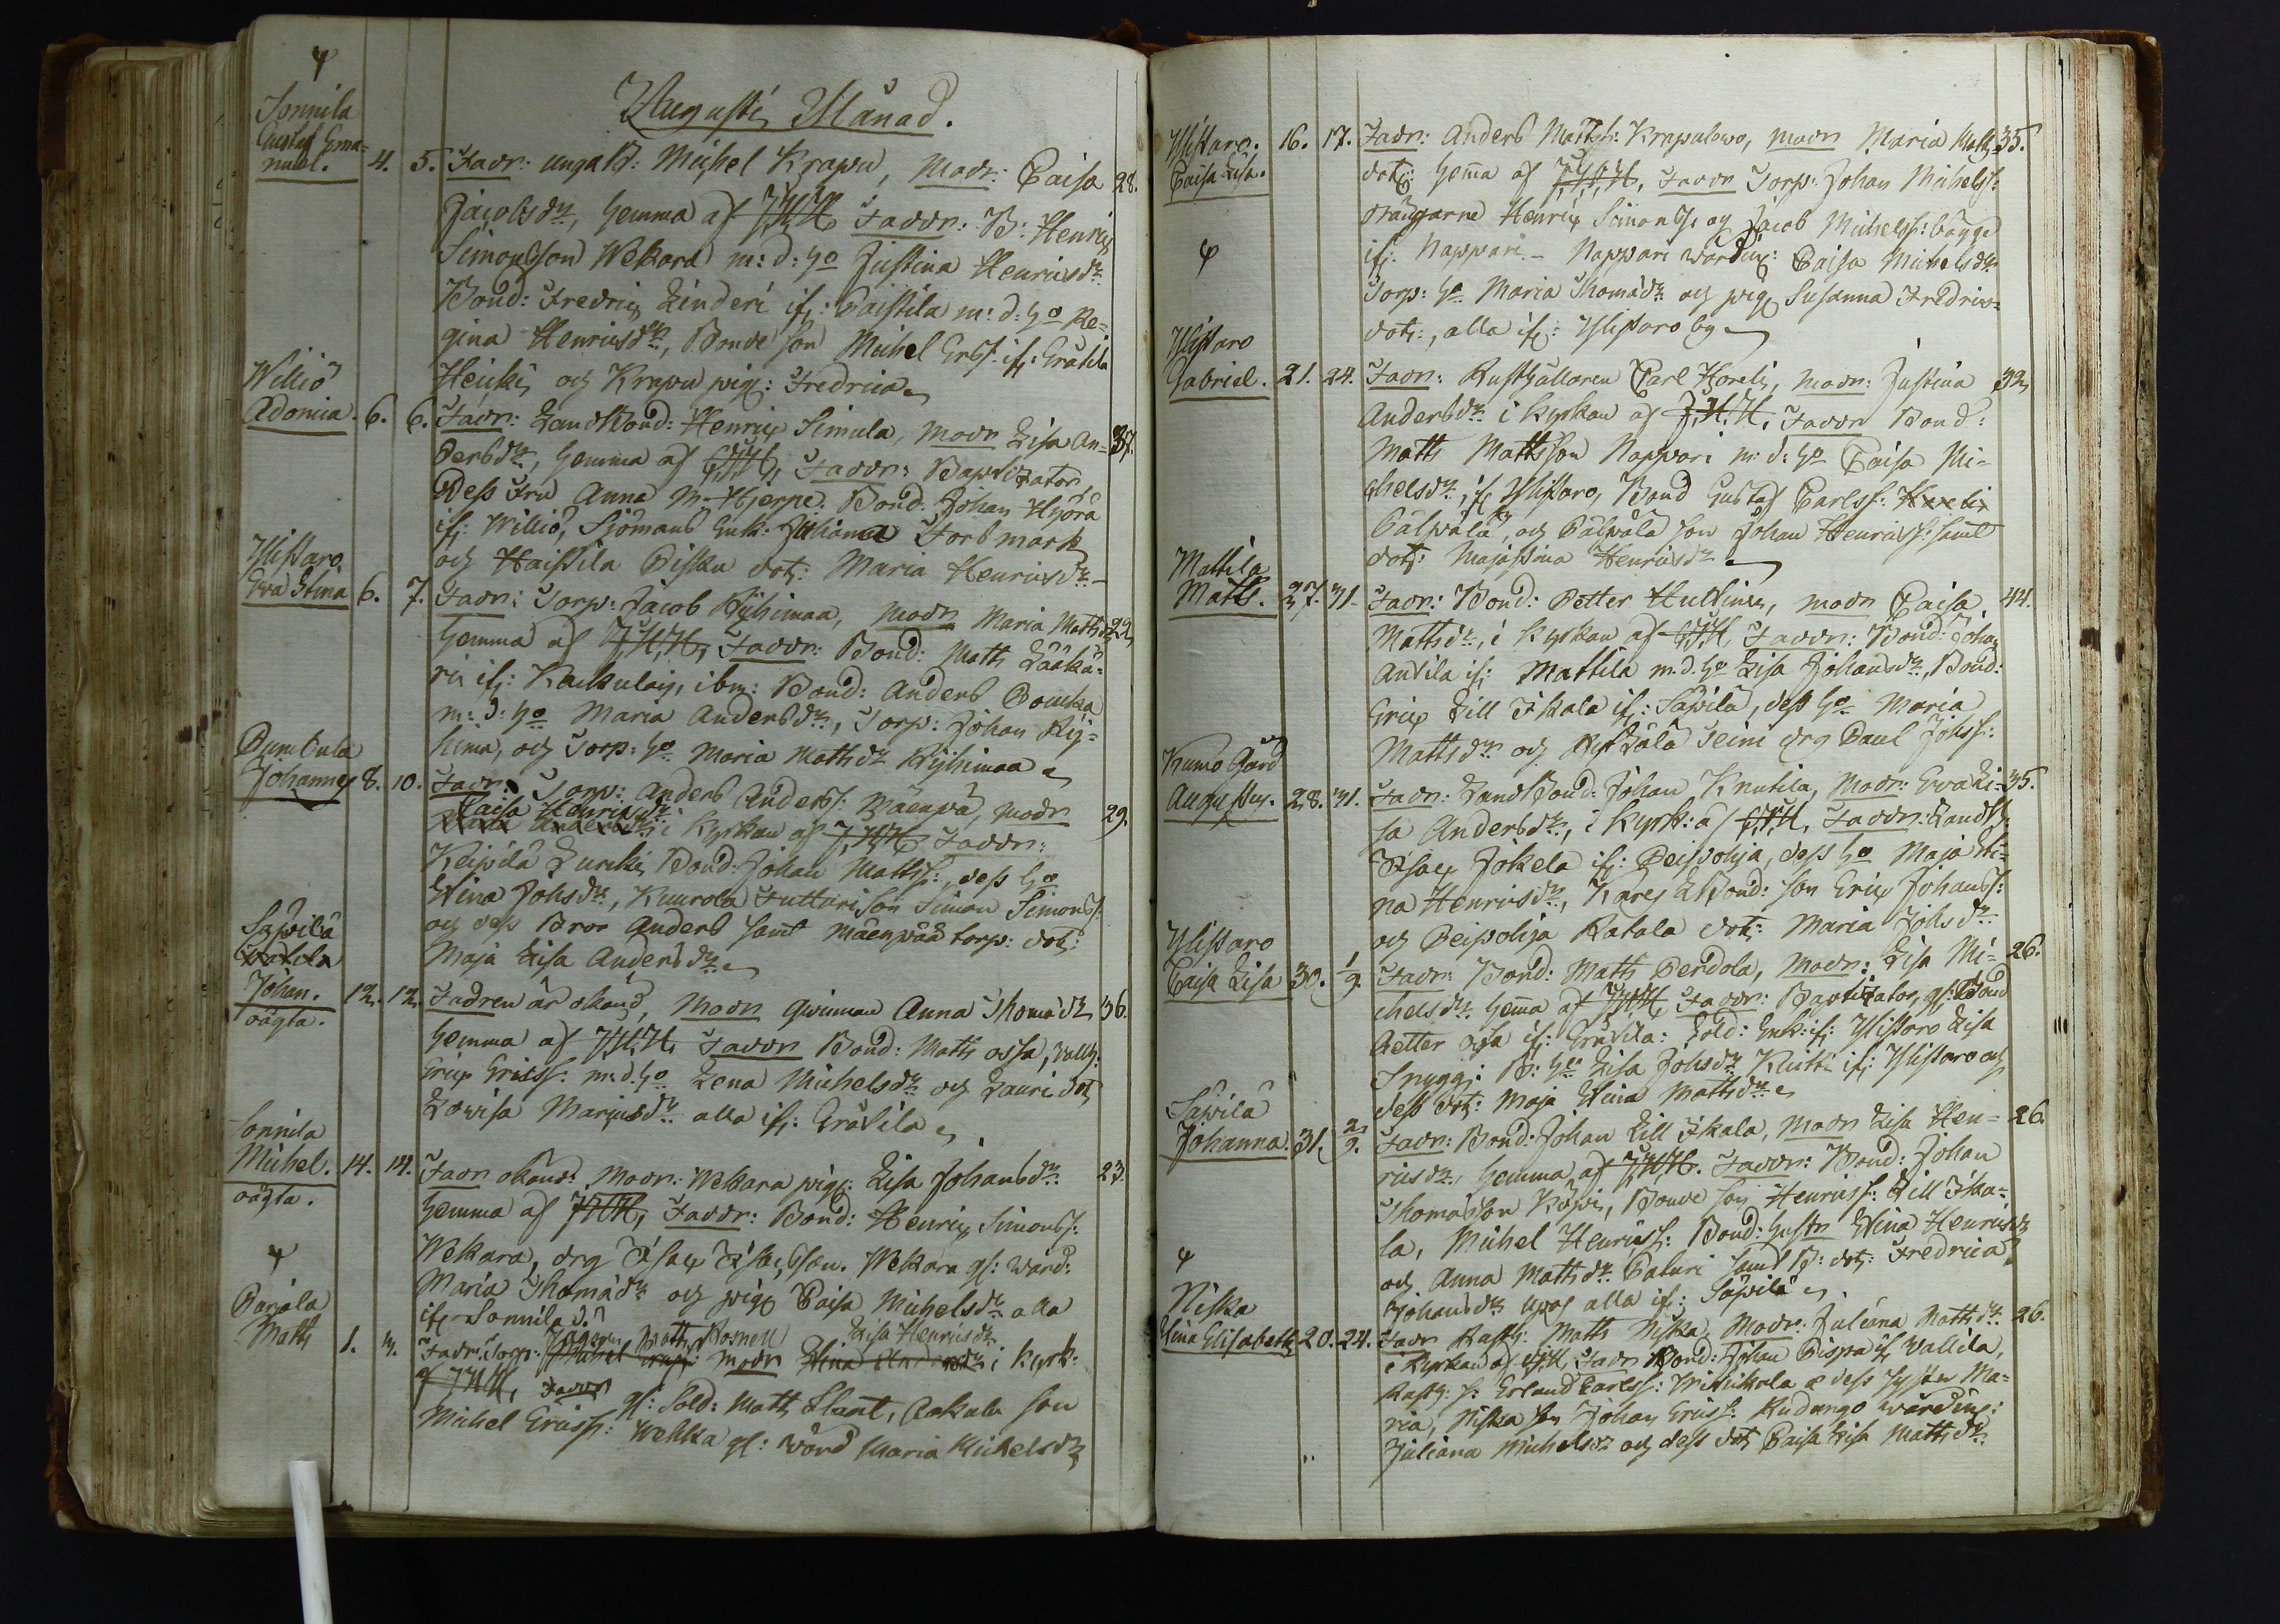 Augusti Månad.
Sonnila
Gustaf Ema=
nuel. 4. 5. Fadr: unga B: Michel Krapu, Modr: Caisa 28.
Jacobsdr, hemma af Fadder: B: Henric
Simonsson Wekara m: d: ho Justina Henricsdr
Bond: Fredric Linderi if: Caistila m: d: ho Re=
gina Henricsdr, Bonde son Michel Ersf. if: Gräkila
Heicki och Krapu pig: Fredrica
Willio
Adonia. 6. 6. Fadr: LandBond: Henric Simula, Modr Lisa An= 37.
dersdr, hemma af Faddr: Baptizator,
Dess Fru Anna M. Hjerpe. Bond: Johan Hyörä
if: Williö, Sjömans Enk: Juliana Forsmark
och Haistila Piska dotr: Maria Henricsdr
Ylistaro.
Eva Stina 6. 7. Fadr: Torp: Jacob Ryhimaa, Modr Maria Mattsdr 22
hemma af Faddr: Bond: Matts Lääkä=
ri if: Kackulais, ibm: Bond: Anders Pomka
m: d: ho Maria Andersdr, Torp: Johan Ryi=
hima, och Torp: ho Maria Mattsdr Ryhimaa
Pumbula
Johannes 8. 10. Fadr: Torp: Anders Anderss: Mäenpä, modr 29.
Caisa Henricsdr
i Kyrkan af Faddr:
Keipilä Zurcki Bond: Johan Mattss:, dess ho
Stina Johsdr, Kuurola Futturi son Simon Simonss:
och dess Bror Anders samt Mäenpää torp: dotr:
Maja Lisa Andersdr
Säpilä
Johan. 12. 12. Fadren är okänd, Modr qwinnan Anna Thomadr 36.
oägta.
hemma af Faddr Bond: Matts ossa, Vallg:
Eric Ericss: m: d. ho Lena Michelsdr och Lauri dotr
Lovisa Mariusdr alla if: Gråtila
Sonnila
Michel. 14. 14. Fadr okänd: Modr: Wekara pig: Lisa Johansdr 23.
oägta.
hemma af Faddr: Bond: Henric Simonss:
Wekara, drg Isac Isacsson. Wekara gl: Ward:
Maria Thomadr och pig Caisa Michelsdr alla
if: Sonnila d:
Parjala
Matts 1. 3. Fadr: Torp: Jägaren Matts Rosnell modr Lisa Henricsdr i Kyrk:
af Faddr gl: Sold: Matts Slant, Aakula son
Michel Ericss: Wehka gl: Wärd Maria Michelsdr
Ylistaro. 16. 17. Fadr: Anders Mattss: Krapulowo, modr Maria Matts= 35.
Caisa Lisa.
dotr: hema af Faddr Torp: Johan Michelss:
drängarne Henric Simonss. och Jacob Michelss: bägge
if: Nappari - Nappari wärdin: Caisa Michelsdr
Torp: ho Maria Thomadr och pig Susanna Fredrics=
dotr:, alla if: Ylistaro by
Ylistaro
Gabriel. 21. 24. Fadr: Rusthållaren Carl Horeli, Modr: Justina 32
Andersdr i Kyrkan af Faddr Bond:
Matts Mattsson Nappari m: d: ho Caisa Mi=
chelsdr, if Ylistaro, Bond Gustaf Carlss: Horelix
Pälpälä, och Pälpälä son Johan Henricss: samt
dotr: Majastina Henricsdr
Mattila
Matts. 27. 31. Fadr: Bond: Petter Hullinen, modr Caisa 44.
Mattsdr, i Kyrkan af Faddr: Bond: Johan
Antila if: Mattila m. d. ho Lisa Johansdr, Bond:
Eric Lill Ikala if: Säpilä, dess ho Maria
Mattsdr och seini drg Paul Johss:
Kumo Gård
Augustus. 28. 31. Fadr: LandBond: Johan Knutila, Modr: Eva Li= 35.
sa Andersdr, i Kyrk: af Faddr: Landb:
Isac Jokela if: Peipohja, dess ho Maja Sti=
na Henricsdr, Karej LBond: son Eric Johanss:
och Peipohja Ratala dotr: Maria Johsdr
Ylistaro
Caisa Lisa 30. 1/9. Fadr: Bond: Matts Perdola, Modr: Lisa Mi= 26.
chelsdr hema af Faddr: Baptizator, gl: Bond
Petter ossa if: Gråtila: Sold: Enk: if: Ylistaro Lisa
Snygg: B: ho Lisa Johsdr Klutti if: Ylistaro och
dess dotr: Maja Stina Mattsdr
Säpilä
Johanna. 31. 2/9. Fadr: Bond: Johan Lill Ikala, Modr Lisa Hen= 26.
ricsdr, hemma af Faddr: Bond: Johan
Thomasson Köpi, Bonde son Henricss: Lill Ika=
la, Michel Henricss: Bond: hustr Stina Henricsdr
och Anna Mattsdr Paturi samt B: dotr: Fredrica
Johansdr Upof alla if: Säpilä
Niska
Stina Elisabeth 20. 24. Fadr Rusth: Matts Niska, Modr: Juliana Mattsdr 26.
i Kyrkan af Fadr Bond: Johan Pispa if Wallila,
Rusth: s: Erland Carlss: Wikikala & dess syster Ma=
ria, Niska son Johan Ericss: Rudango wärdin:
Juliana Michelsdr och dess dotr Caisa Lisa Mattsdr